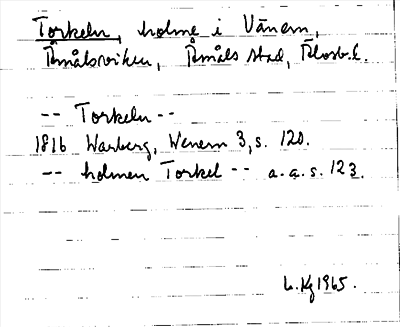 Torkeln, holme i Vänern,
Åmålsviken, Åmåls stad, Älvsb. l.
-- Torkeln --
1816 Warberg, Wenern 3, s. 120.
-- holmen Torkel -- a. a. s. 123.
1965.